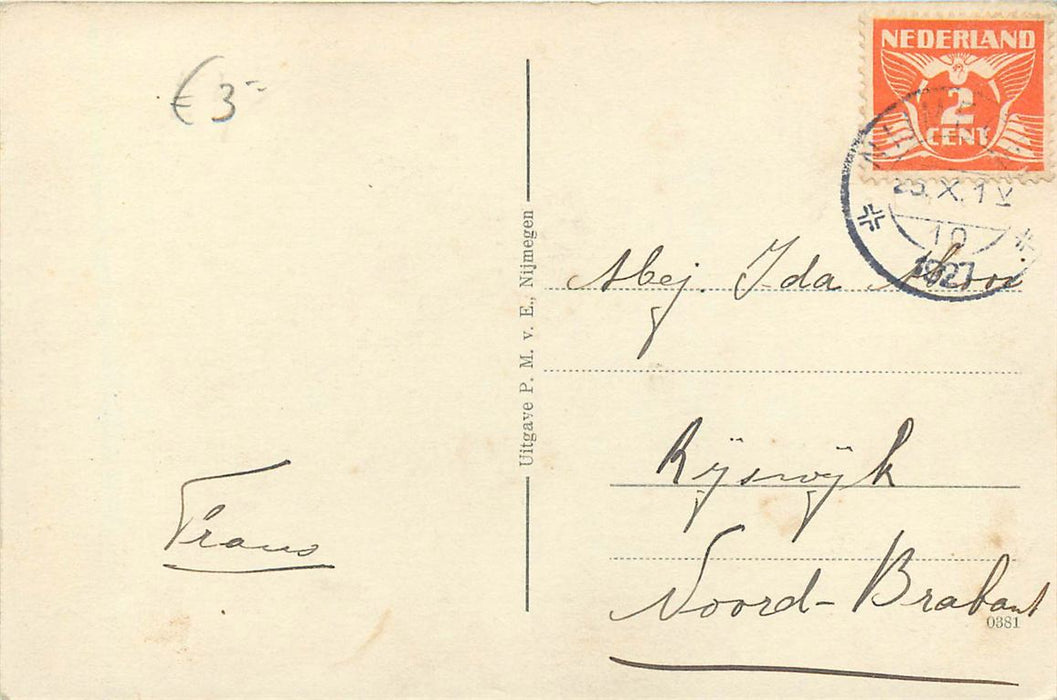 € 3-
NEDERLAND
2
CENT
25.X.1V
10
1927
Uitgave P. M. v. E., Nijmegen
Mej. Ida
Rijswijk
Noord-Brabant
0381
Frans